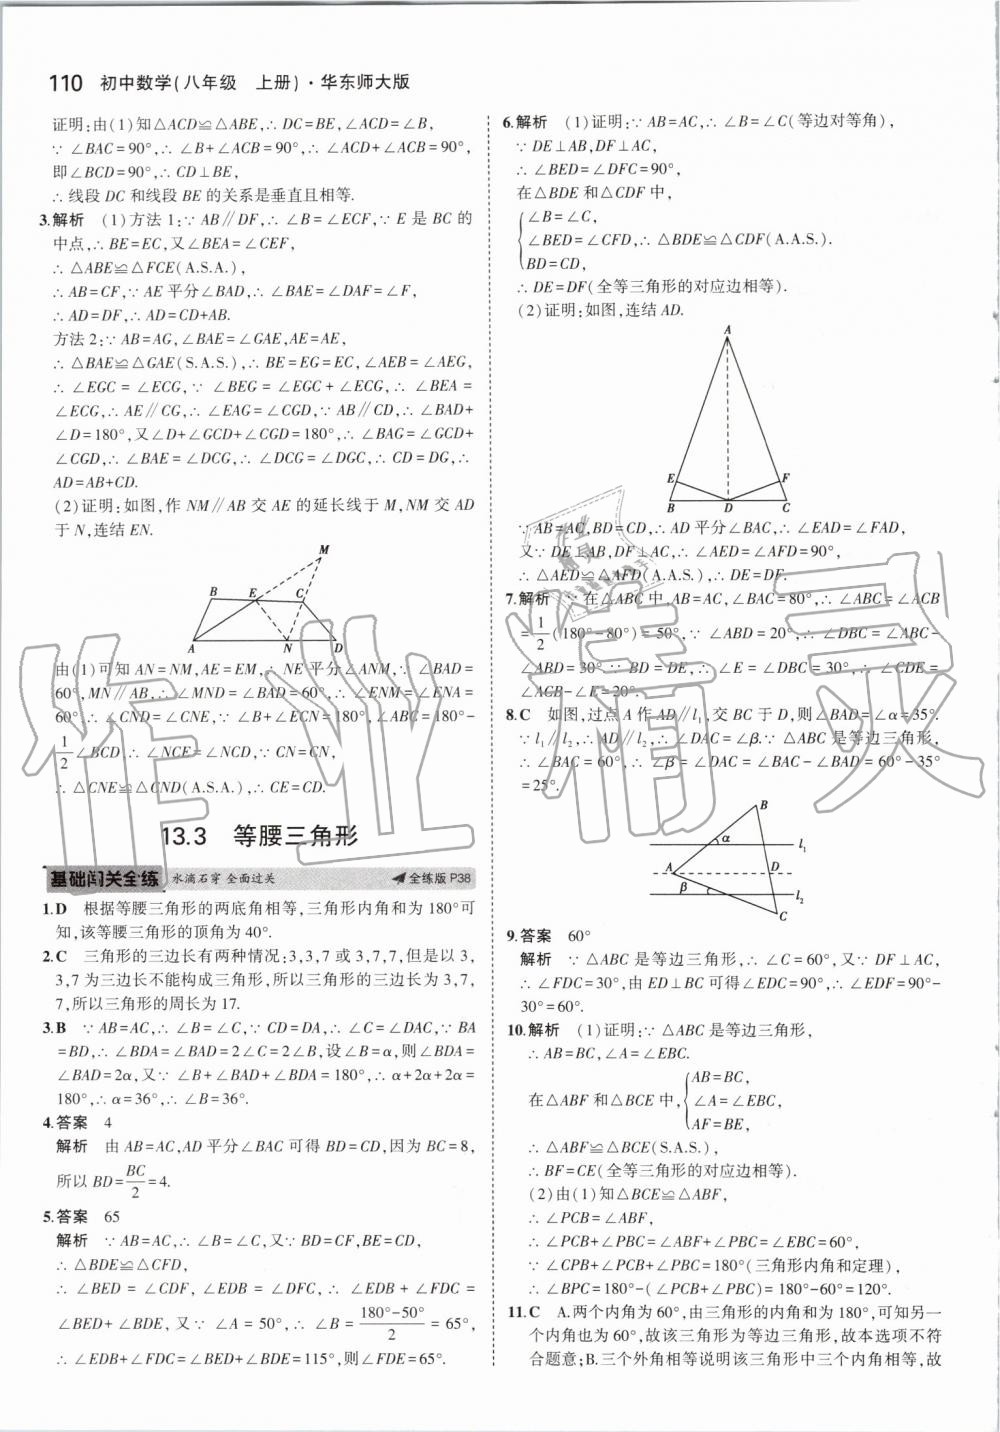 110 初中数学(八年级 上册)·华东师大版
证明:由(1)知△ACD≌△ABE,∴DC=BE,∠ACD=∠B,
∵∠BAC=90°,∴∠B+∠ACB=90°,∴∠ACD+∠ACB=90°,
即∠BCD=90°,∴CD⊥BE,
∴线段DC和线段BE的关系是垂直且相等.
3.解析 (1)方法1:∵AB∥DF,∴∠B=∠ECF,∵E是BC的
中点,∴BE=EC,又∠BEA=∠CEF,
∴△ABE≌△FCE(A.S.A.),
∴AB=CF,∵AE平分∠BAD,∴∠BAE=∠DAF=∠F,
∴AD=DF,∴AD=CD+AB.
方法2:∵AB=AG,∠BAE=∠GAE,AE=AE,
∴△BAE≌△GAE(S.A.S.),∴BE=EG=EC,∠AEB=∠AEG,
∴∠EGC=∠ECG,∵∠BEG=∠EGC+∠ECG,∴∠BEA=
∠ECG,∴AE∥CG,∴∠EAG=∠CGD,∵AB∥CD,∴∠BAD+
∠D=180°,又∠D+∠GCD+∠CGD=180°,∴∠BAG=∠GCD+
∠CGD,∴∠BAE=∠DCG,∴∠DCG=∠DGC,∴CD=DG,∴
AD=AB+CD.
(2)证明:如图,作NM∥AB交AE的延长线于M,NM交AD
于N,连结EN.
M
B E C
A N D
由(1)可知AN=NM,AE=EM,∴NE平分∠ANM,∵∠BAD=
60°,MN∥AB,∴∠MND=∠BAD=60°,∴∠ENM=∠ENA=
60°,∴∠CND=∠CNE,∵∠B+∠ECN=180°,∠ABC=180°-
1/2∠BCD,∴∠NCE=∠NCD,∵CN=CN,
∴△CNE≌△CND(A.S.A.),∴CE=CD.
13.3 等腰三角形
基础闯关全练 水滴石穿 全面过关 全练版P38
1.D 根据等腰三角形的两底角相等,三角形内角和为180°可
知,该等腰三角形的顶角为40°.
2.C 三角形的三边长有两种情况:3,3,7或3,7,7,但是以3,
3,7为三边长不能构成三角形,所以三角形的三边长为3,7,
7,所以三角形的周长为17.
3.B ∵AB=AC,∴∠B=∠C,∵CD=DA,∴∠C=∠DAC,∵BA
=BD,∴∠BDA=∠BAD=2∠C=2∠B,设∠B=α,则∠BDA=
∠BAD=2α,又∵∠B+∠BAD+∠BDA=180°,∴α+2α+2α=
180°,∴α=36°,∴∠B=36°.
4.答案 4
解析 由AB=AC,AD平分∠BAC可得BD=CD,因为BC=8,
所以BD=BC/2=4.
5.答案 65
解析 ∵AB=AC,∴∠B=∠C,又∵BD=CF,BE=CD,
∴△BDE≌△CFD,
∴∠BED=∠CDF,∠EDB=∠DFC,∴∠EDB+∠FDC=
∠BED+∠BDE,又∵∠A=50°,∴∠B=(180°-50°)/2=65°,
∴∠EDB+∠FDC=∠BED+∠BDE=115°,则∠FDE=65°.
6.解析 (1)证明:∵AB=AC,∴∠B=∠C(等边对等角),
∵DE⊥AB,DF⊥AC,
∴∠BED=∠DFC=90°,
在△BDE和△CDF中,
{∠B=∠C,
∠BED=∠CFD,∴△BDE≌△CDF(A.A.S.).
BD=CD,
∴DE=DF(全等三角形的对应边相等).
(2)证明:如图,连结AD.
A
E F
B D C
∵AB=AC,BD=CD,∴AD平分∠BAC,∴∠EAD=∠FAD,
又∵DE⊥AB,DF⊥AC,∴∠AED=∠AFD=90°,
∴△AED≌△AFD(A.A.S.),∴DE=DF.
7.解析 ∵在△ABC中,AB=AC,∠BAC=80°,∴∠ABC=∠ACB
=1/2(180°-80°)=50°,∵∠ABD=20°,∴∠DBC=∠ABC-
∠ABD=30°,∵BD=DE,∴∠E=∠DBC=30°,∴∠CDE=
∠ACB-∠E=20°.
8.C 如图,过点A作AD∥l1,交BC于D,则∠BAD=∠α=35°.
∵l1∥l2,∴AD∥l2,∴∠DAC=∠β.∵△ABC是等边三角形,
∴∠BAC=60°,∴∠β=∠DAC=∠BAC-∠BAD=60°-35°
=25°.
B
α l1
A D
β l2
C
9.答案 60°
解析 ∵△ABC是等边三角形,∴∠C=60°,又∵DF⊥AC,
∴∠FDC=30°,由ED⊥BC可得∠EDC=90°,∴∠EDF=90°-
30°=60°.
10.解析 (1)证明:∵△ABC是等边三角形,
∴AB=BC,∠A=∠EBC.
在△ABF和△BCE中,{AB=BC,
∠A=∠EBC,
AF=BE,
∴△ABF≌△BCE(S.A.S.),
∴BF=CE(全等三角形的对应边相等).
(2)由(1)知△BCE≌△ABF,
∴∠PCB=∠ABF,
∴∠PCB+∠PBC=∠ABF+∠PBC=∠EBC=60°,
∵∠CPB+∠PCB+∠PBC=180°(三角形内角和定理),
∴∠BPC=180°-(∠PCB+∠PBC)=180°-60°=120°.
11.C A.两个内角为60°,由三角形的内角和为180°,可知另一
个内角也为60°,故该三角形为等边三角形,故本选项不符
合题意;B.三个外角相等说明该三角形中三个内角相等,故
作业精灵